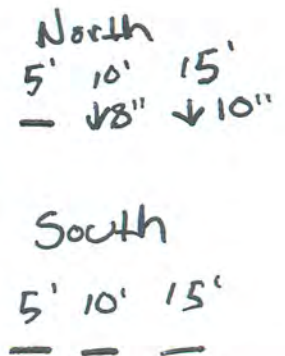 North
5' 10' 15'
— ↓8" ↓10"
South
5' 10' 15'
— — —